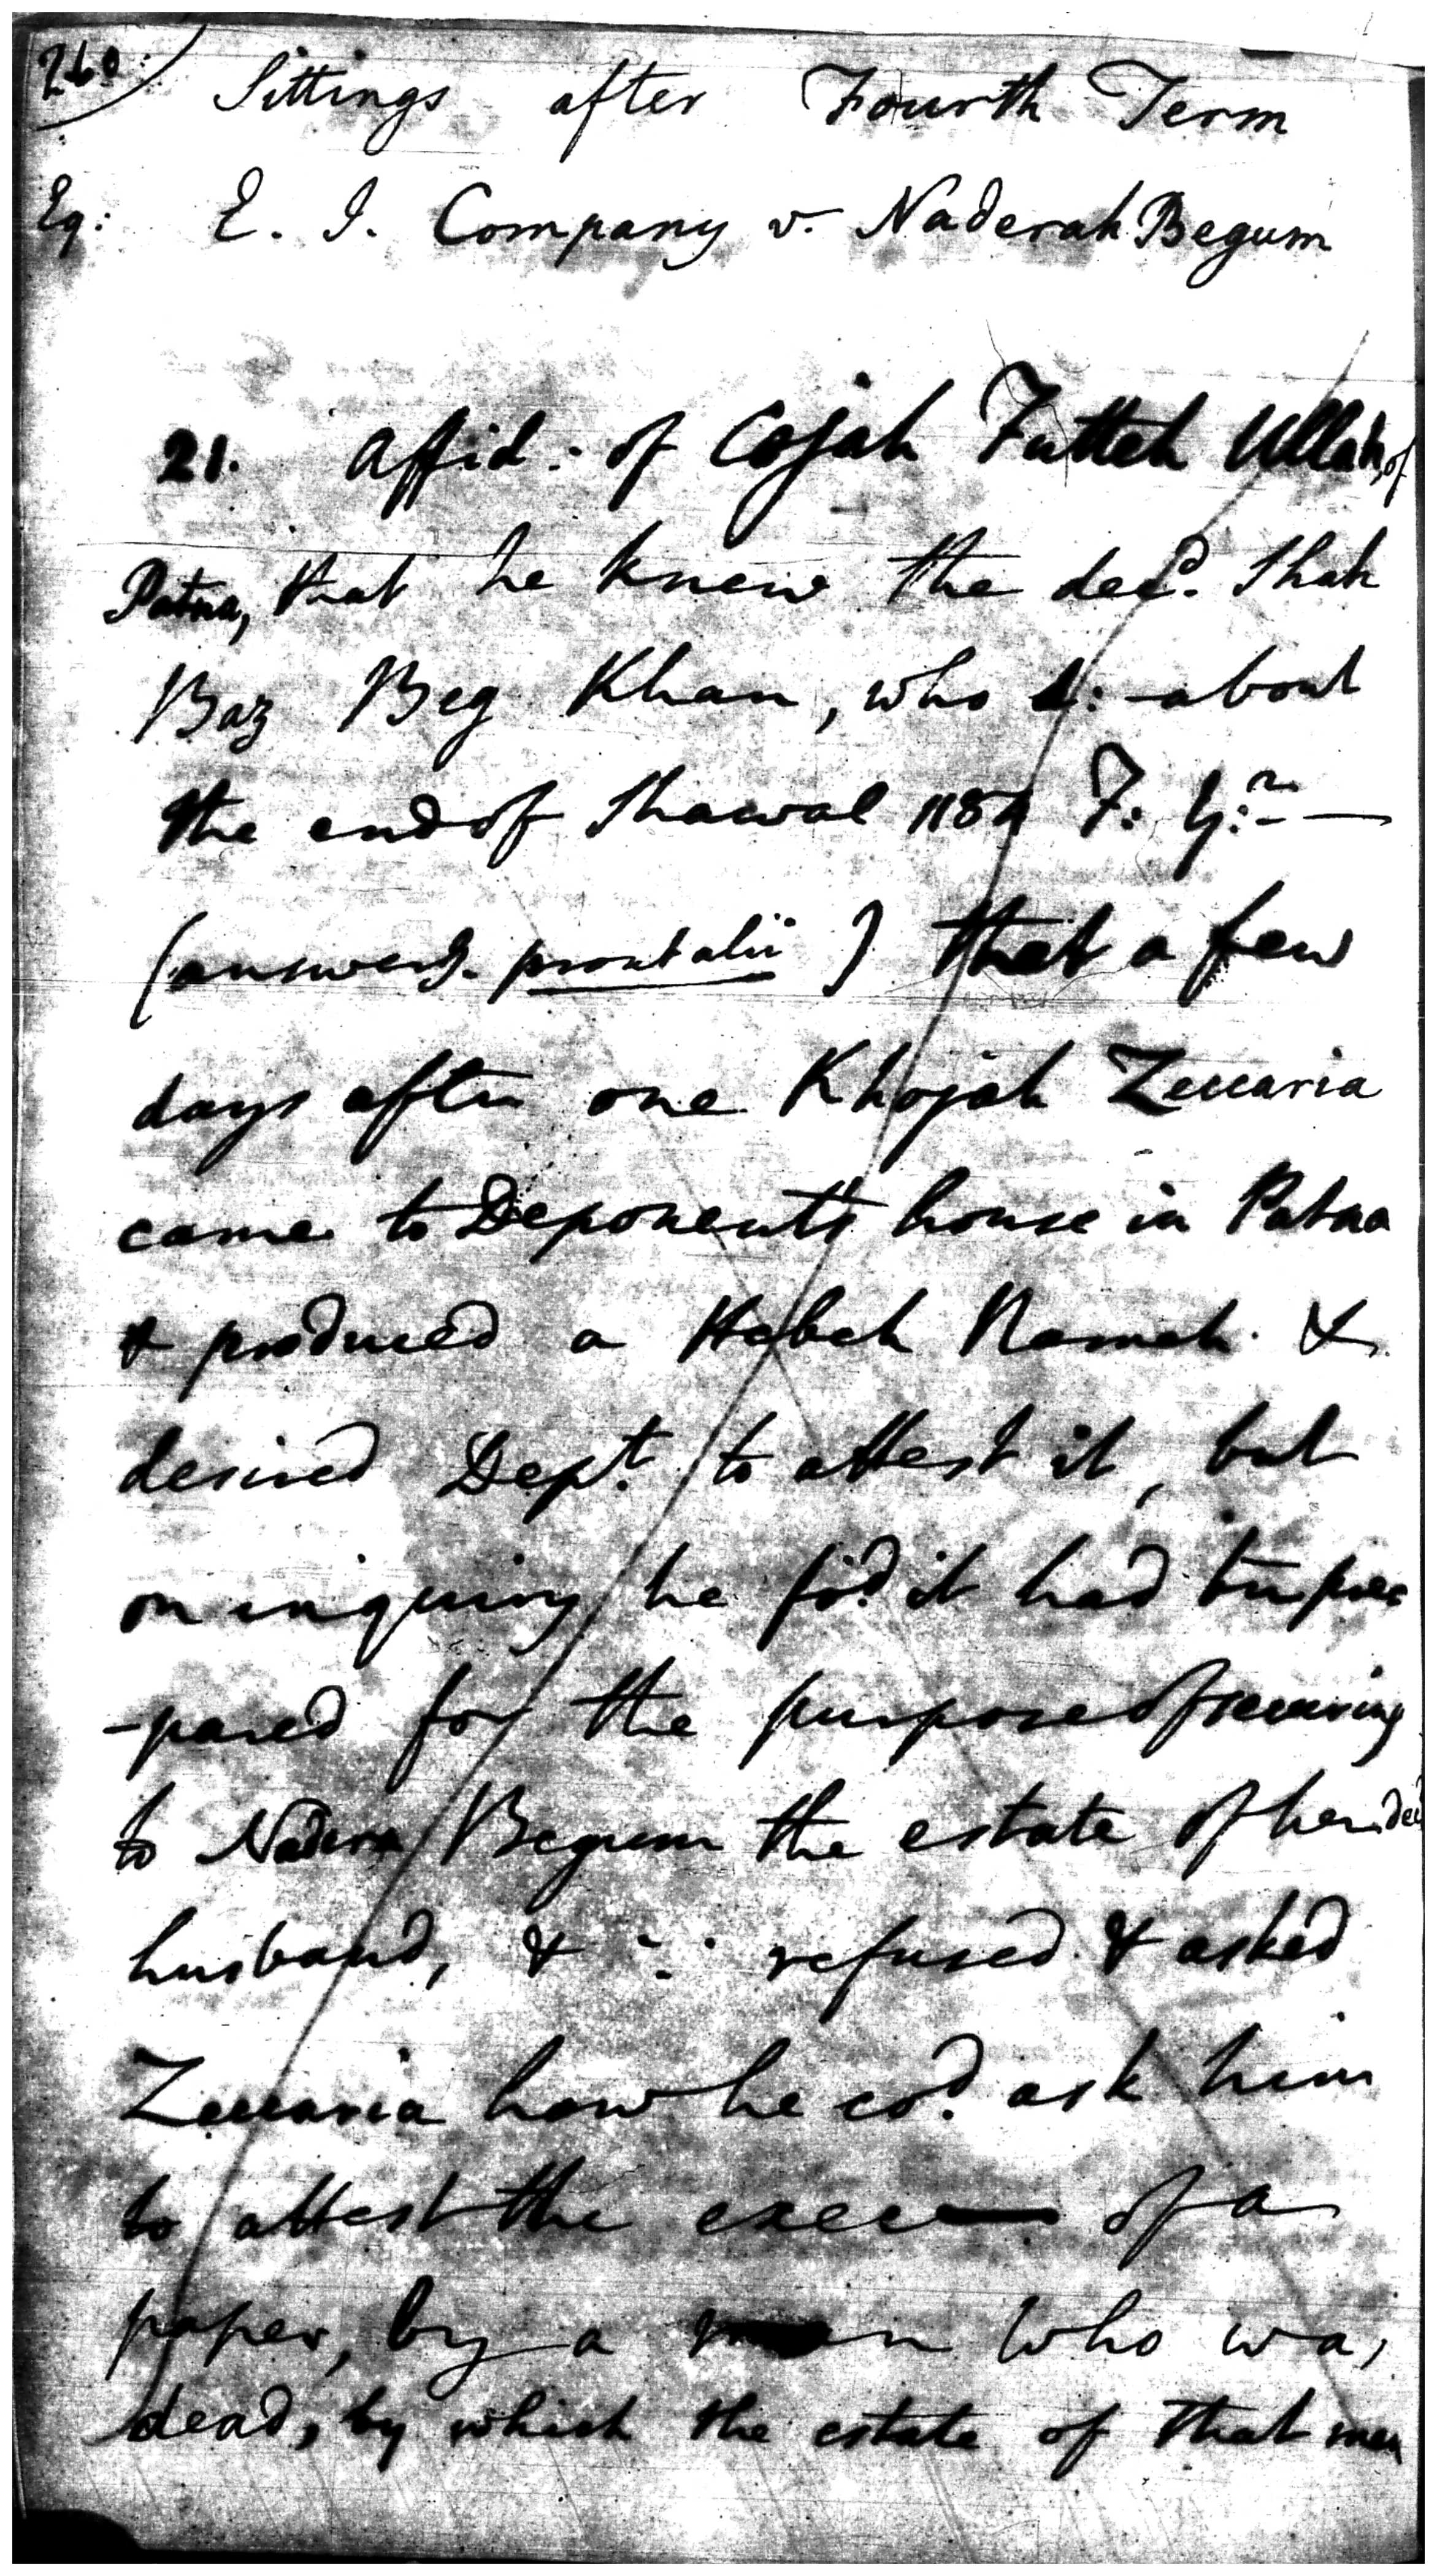 260
Sittings after Fourth Term
Eq: E. I. Company v. Naderah Begum
21. Affid: of Cojah Futteh Ullah, of
Patna, that he knew the decd. Shah
Baz Beg Khan, who d: about
the end of Shawal 1184 F: Y: —
(answers. prout alii) that a few
days after one Khojah Zeccaria
came to Deponent's house in Patna
& produced a Hebeh Nameh &
desired Dept. to attest it, but
on inquiry he fod. it had been pre
-pared for the purpose of securing
to Nadera Begum the estate of her decd
husband, & ∴ refused & asked
Zeccaria how he cod. ask him
to attest the exec— of a
paper, by a man who was
dead, by which the estate of that man